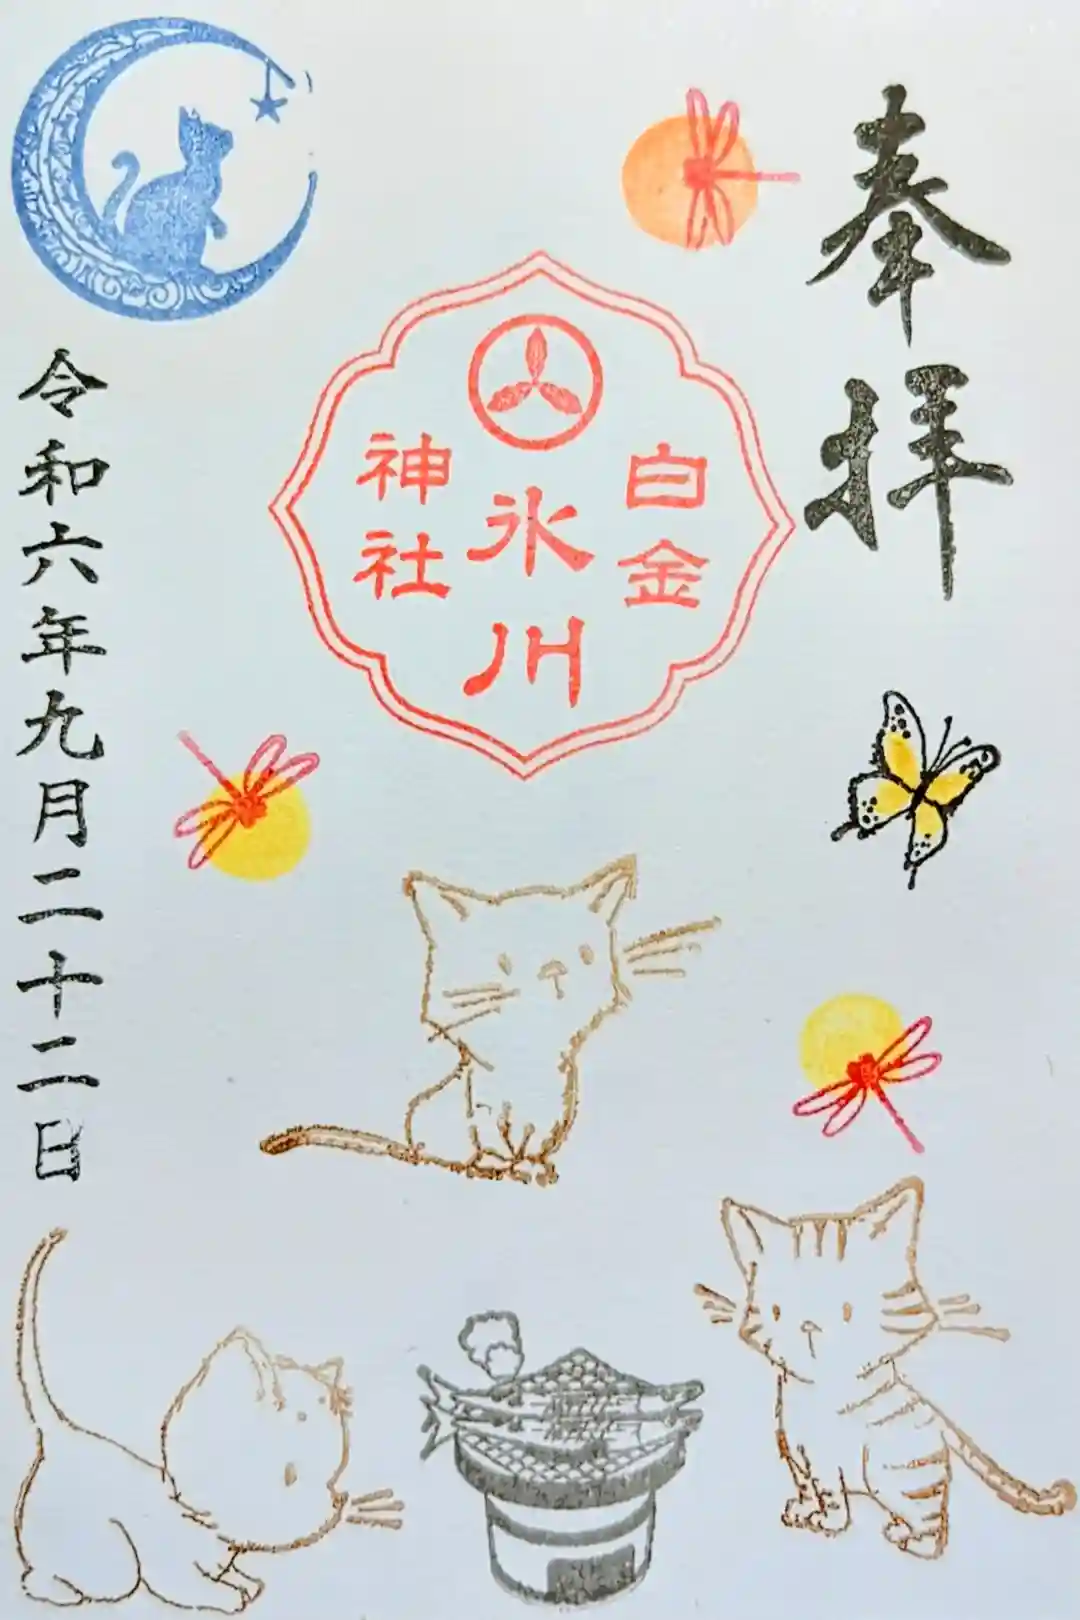 奉拝
白金
氷川
神社
令和六年九月二十二日